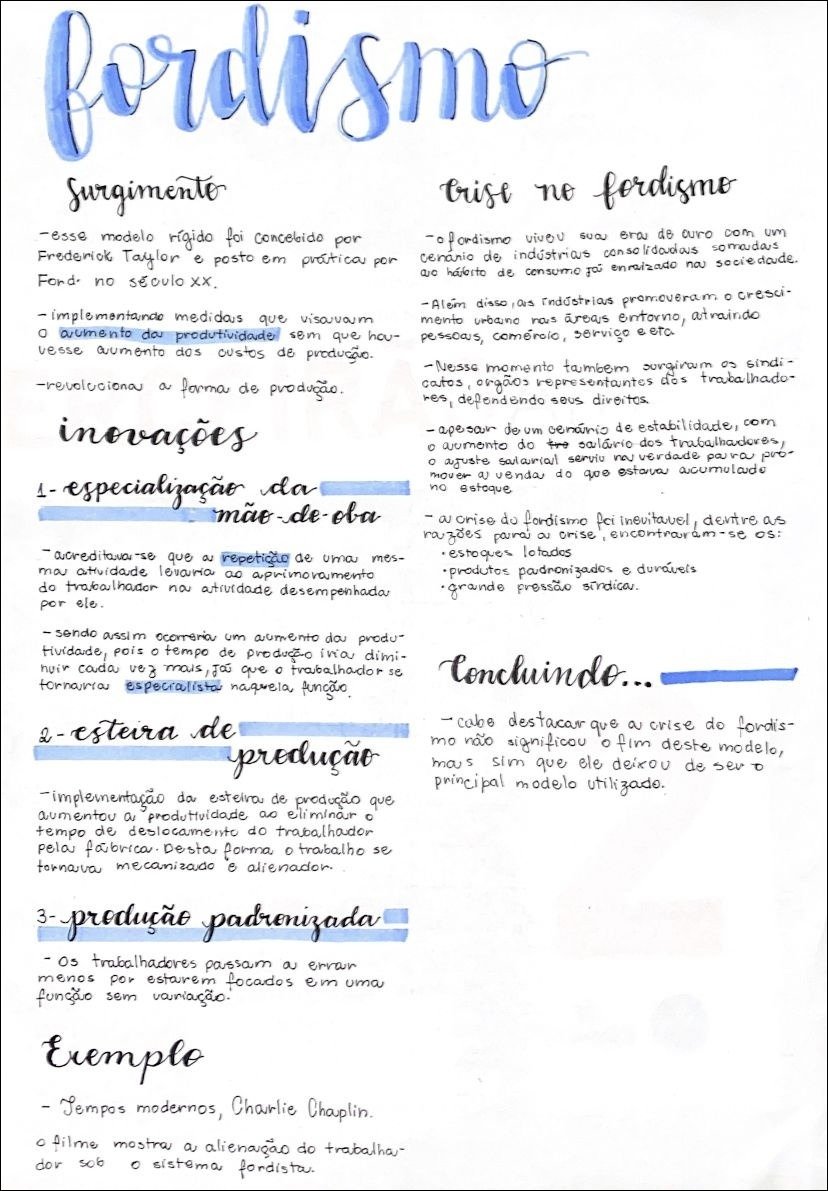 fordismo
Surgimento
- esse modelo rígido foi concebido por
Frederick Taylor e posto em prática por
Ford no século XX.
- implementando medidas que visavam
o aumento da produtividade sem que hou-
vesse aumento dos custos de produção.
- revoluciona a forma de produção.
inovações
1- especialização da
mão-de-oba
- acreditava-se que a repetição de uma mes-
ma atividade levaria ao aprimoramento
do trabalhador na atividade desempenhada
por ele.
- sendo assim ocorreria um aumento da produ-
tividade, pois o tempo de produção iria dimi-
nuir cada vez mais, já que o trabalhador se
tornaria especialista naquela função.
2- esteira de
produção
- implementação da esteira de produção que
aumentou a produtividade ao eliminar o
tempo de deslocamento do trabalhador
pela fábrica. Desta forma o trabalho se
tornava mecanizado e alienador.
3- produção padronizada
- Os trabalhadores passam a errar
menos por estarem focados em uma
função sem variação.
Exemplo
- Tempos modernos, Charlie Chaplin.
o filme mostra a alienação do trabalha-
dor sob o sistema fordista.
Crise no fordismo
- o fordismo viveu sua era de ouro com um
cenário de indústrias consolidadas somadas
ao hábito de consumo já enraizado na sociedade.
- Além disso, as indústrias promoveram o cresci-
mento urbano nas áreas entorno, atraindo
pessoas, comércio, serviço e etc
- Nesse momento tambem surgiram os sindi-
catos, orgãos representantes dos trabalhado-
res, defendendo seus direitos.
- apesar de um cenário de estabilidade, com
o aumento do tra salário dos trabalhadores,
o ajuste salarial serviu na verdade para pro-
mover a venda do que estava acumulado
no estoque
- a crise do fordismo foi inevitavel, dentre as
razões para a crise, encontraram-se os:
• estoques lotados
• produtos padronizados e duráveis
• grande pressão síndica.
Concluindo...
- cabe destacar que a crise do fordis-
mo não significou o fim deste modelo,
mas sim que ele deixou de ser o
principal modelo utilizado.